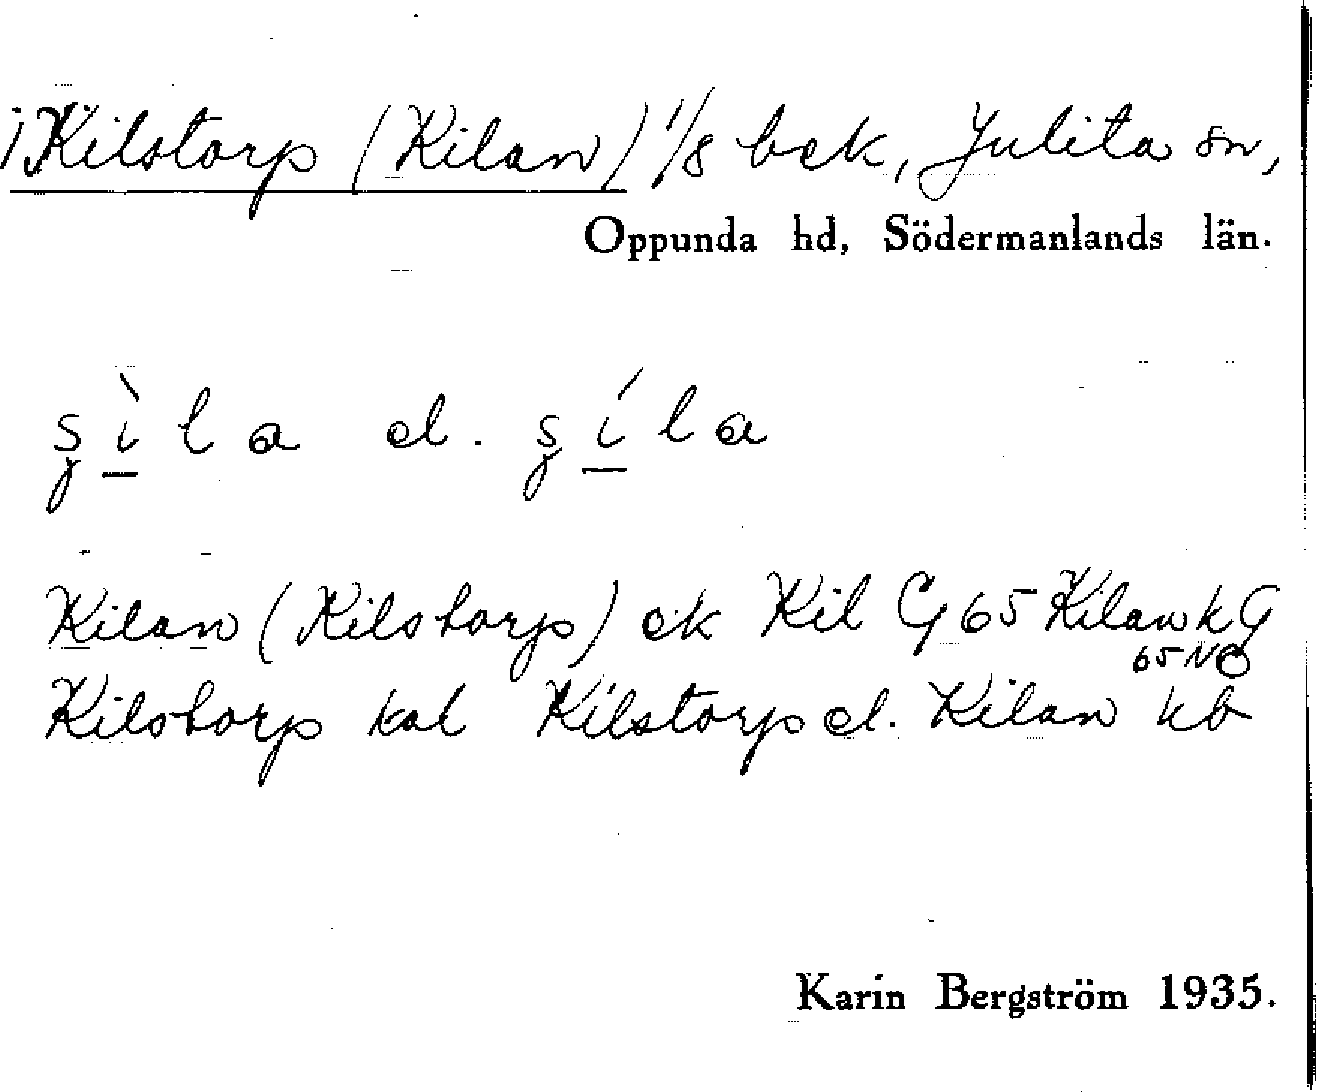 i Kilstorp (Kilan) 1/8 bek, Julita sn,
Oppunda hd, Södermanlands län.
s̨ìla el. s̨íla
Kilan (Kilstorp) ek Kil G 65 Kilan k G
65 NO
Kilstorp kal Kilstorp el. Kilan kb
Karin Bergström 1935.